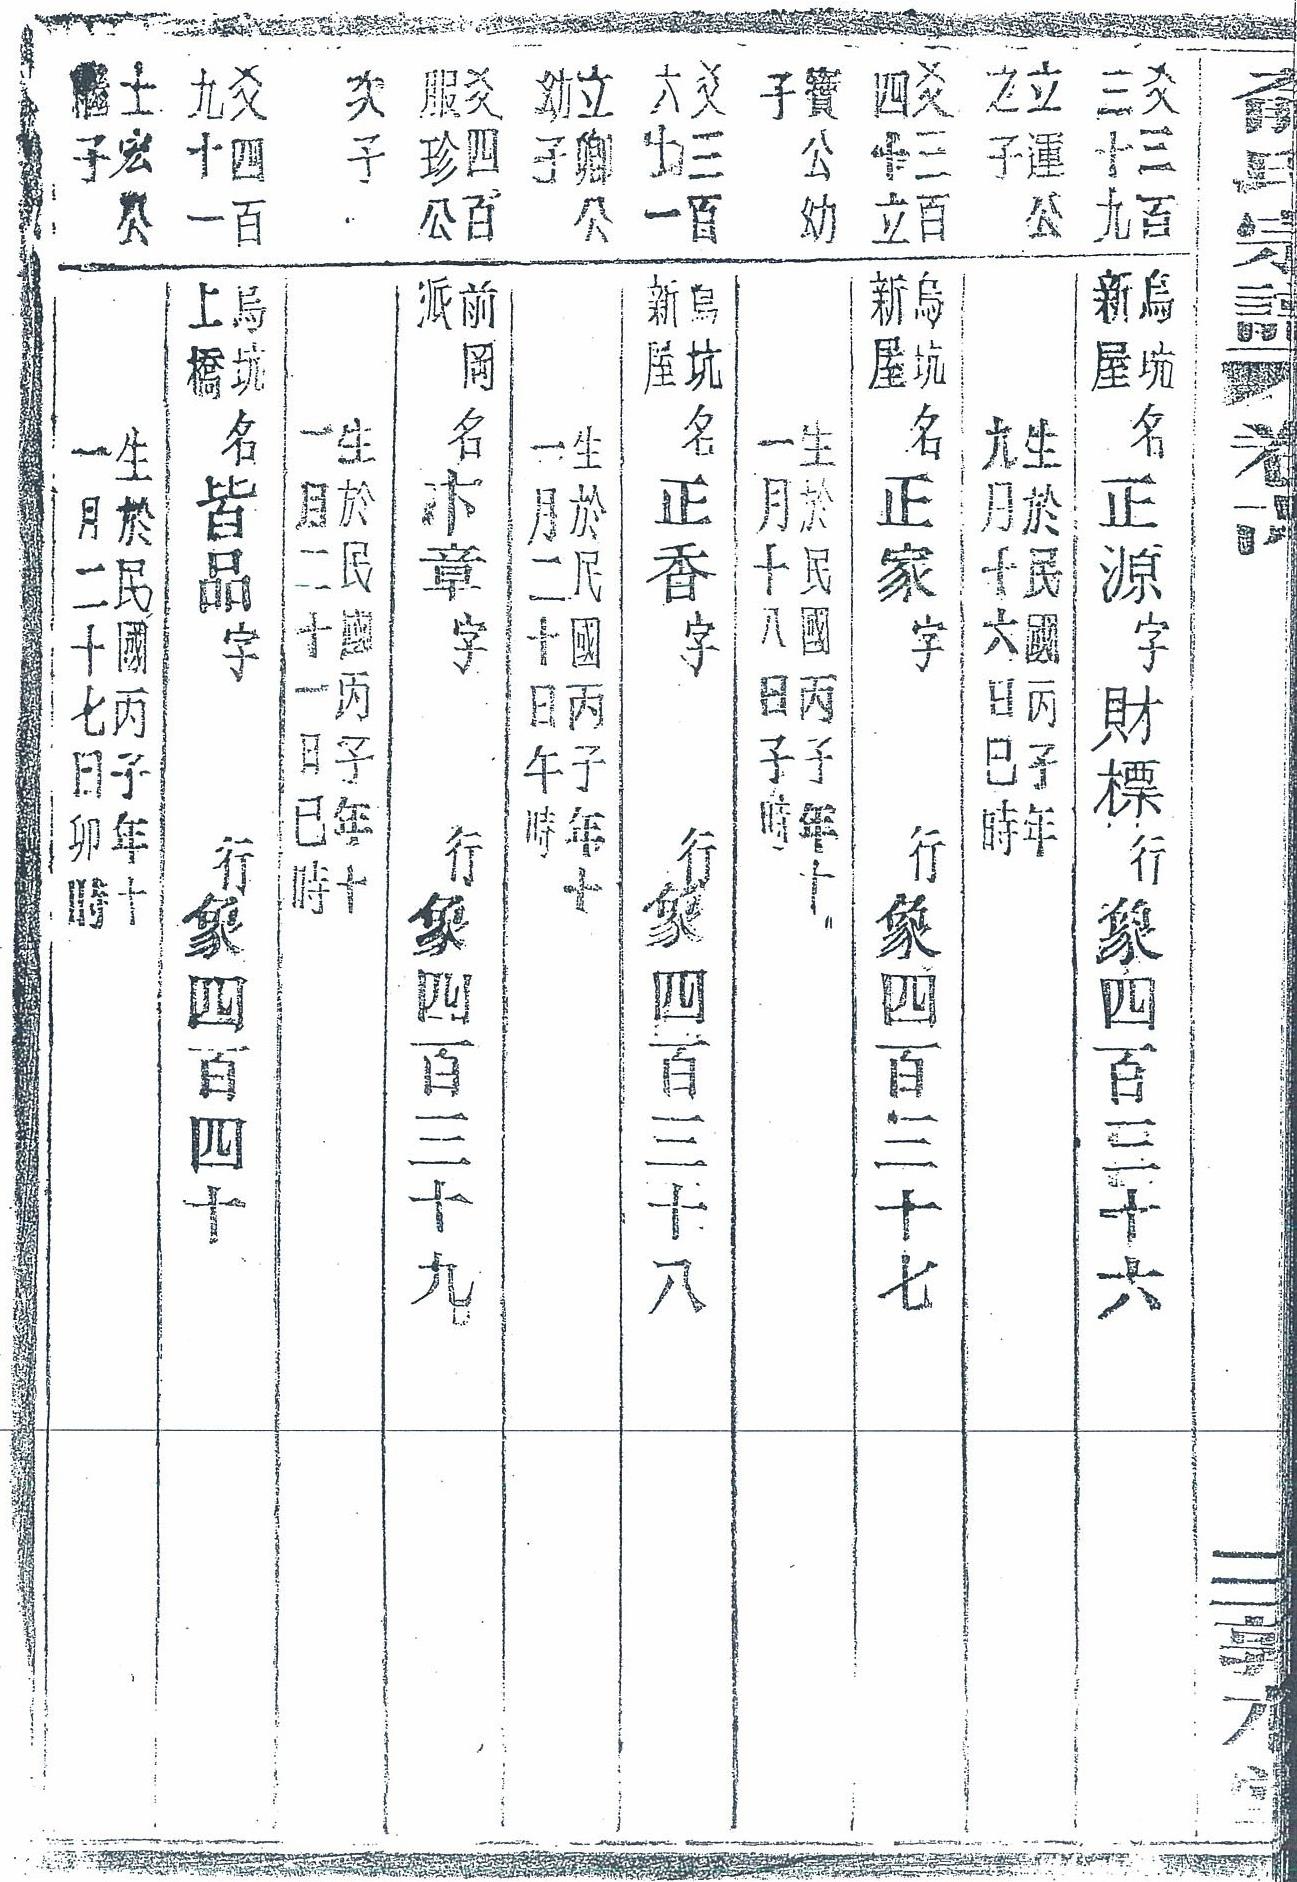 氏宗譜 卷六 三
爻三百
三十九
立運公
之子
烏坑
新屋
名正源字財標行象四百三十六
生於民國丙子年
九月十六日巳時
爻三百
四十立
寶公幼
子
烏坑
新屋
名正家字 行象四百三十七
生於民國丙子年十
一月十八日子時
爻三百
六十一
立卿公
幼子
烏坑
新屋
名正香字 行象四百三十八
生於民國丙子年十
一月二十日午時
爻四百
服珍公
次子
前岡
派
名章字 行象四百三十九
生於民國丙子年十
一月二十一日巳時
爻四百
九十一
士宏公
繼子
烏坑
上橋
名皆品字 行象四百四十
生於民國丙子年十
一月二十七日卯時